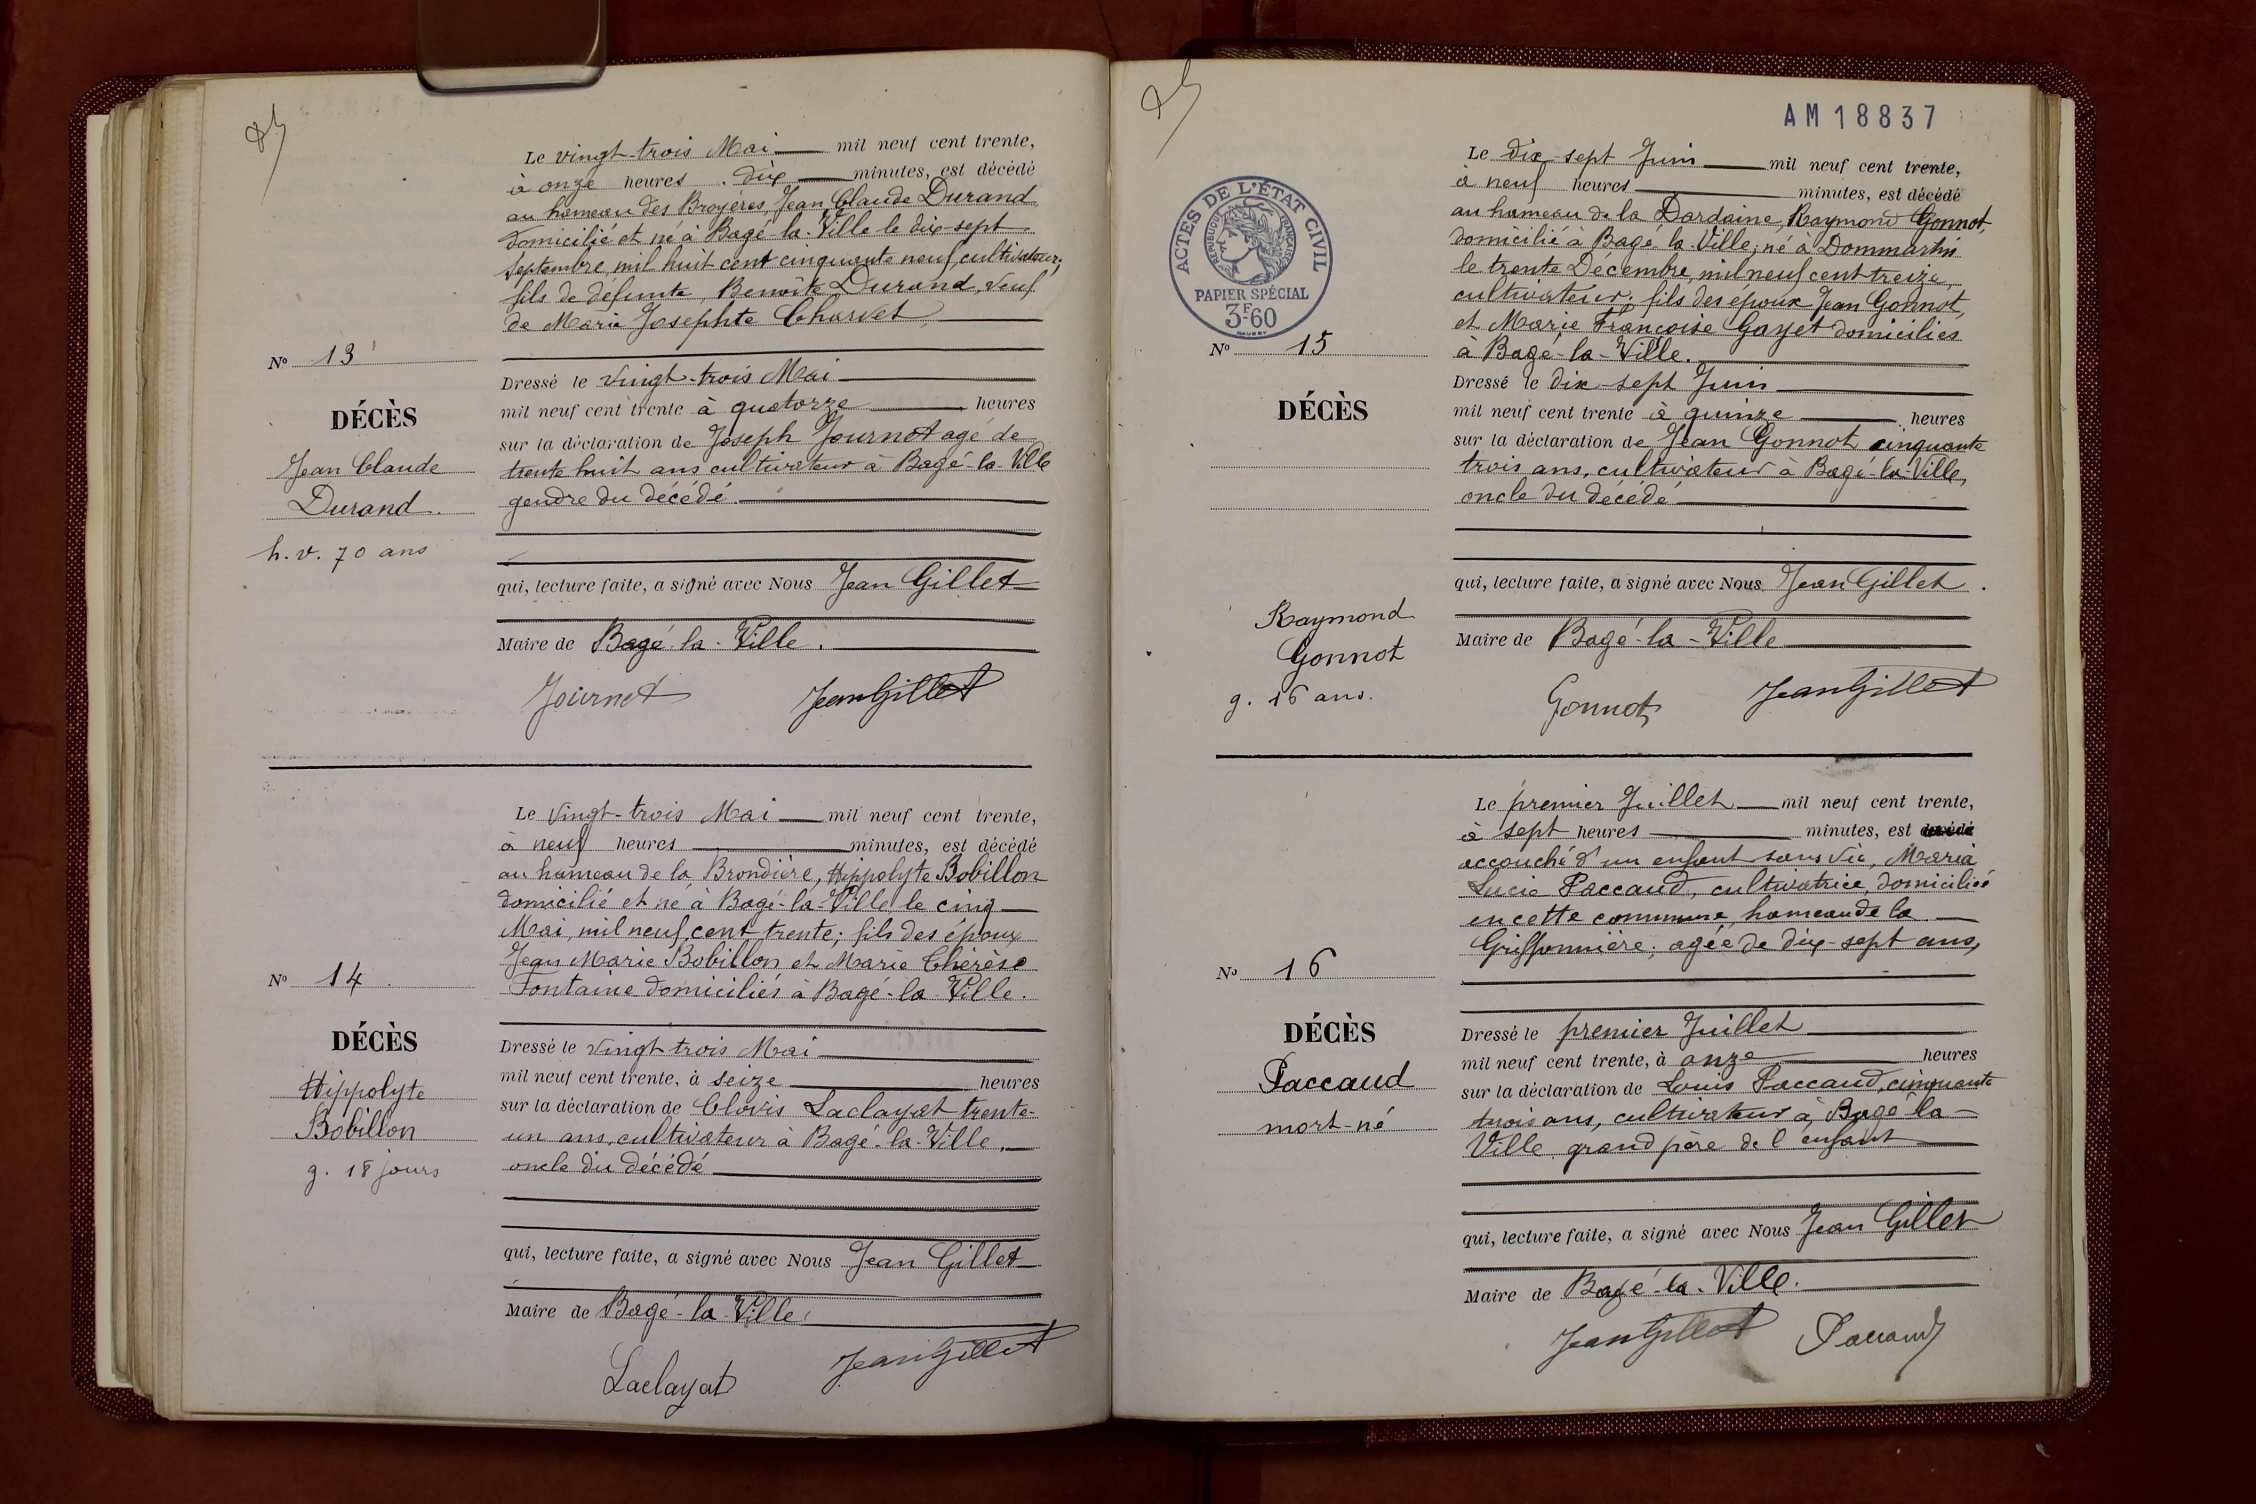 Le vingt-trois Mai mil neuf cent trente,
à onze heures dix minutes, est décédé
au hameau des Broyères, Jean Claude Durand
domicilié et né à Bagé-la-Ville le dix-sept
Septembre mil huit cent cinquante neuf, cultivateur;
fils de défunte, Benoite Durand, veuf
de Marie Josephte Charvet
No 13
DÉCÈS
Jean Claude
Durand.
h. v. 70 ans
Dressé le vingt-trois Mai
mil neuf cent trente à quatorze heures
sur la déclaration de Joseph Journet agé de
trente huit ans cultivateur à Bagé-la-Ville
gendre du décédé.
qui, lecture faite, a signé avec Nous Jean Gillet
Maire de Bagé-la-Ville.
Journet JeanGillet
Le vingt-trois Mai mil neuf cent trente,
à neuf heures minutes, est décédé
au hameau de la Brondière, Hippolyte Bobillon
domicilié et né à Bagé-la-Ville le cinq
Mai, mil neuf cent trente; fils des époux
Jean Marie Bobillon et Marie Therèse
Fontaine domiciliés à Bagé-la Ville.
No 14
DÉCÈS
Hippolyte
Bobillon
g. 18 jours
Dressé le vingt trois Mai
mil neuf cent trente, à seize heures
sur la déclaration de Clovis Laclayat trente-
un ans, cultivateur à Bagé-la-Ville,
oncle du décédé
qui, lecture faite, a signé avec Nous Jean Gillet
Maire de Bagé-la-Ville
Laclayat JeanGillet
AM 18837
ACTES DE L'ÉTAT CIVIL
RÉPUBLIQUE FRANÇAISE
PAPIER SPÉCIAL
3F60
Le dix-sept Juin mil neuf cent trente,
à neuf heures minutes, est décédé
au hameau de la Dardaine, Raymond Gonnot,
domicilié à Bagé-la-Ville; né à Dommartin
le trente Décembre, mil neuf cent treize,
cultivateur; fils des époux Jean Gonnot,
et Marie Françoise Gayet domiciliés
à Bagé-la-Ville.
No 15
DÉCÈS
Raymond
Gonnot
g. 16 ans.
Dressé le dix-sept Juin
mil neuf cent trente à quinze heures
sur la déclaration de Jean Gonnot cinquante
trois ans, cultivateur à Bagé-la-Ville,
oncle du décédé
qui, lecture faite, a signé avec Nous Jean Gillet.
Maire de Bagé-la-Ville
Gonnot JeanGillet
Le premier Juillet mil neuf cent trente,
à sept heures minutes, est décédé
accouché d'un enfant sans vie, Maria
Lucie Paccaud, cultivatrice, domiciliée
en cette commune, hameau de la
Griffonnière; agée de dix-sept ans,
No 16
DÉCÈS
Paccaud
mort-né
Dressé le premier Juillet
mil neuf cent trente, à onze heures
sur la déclaration de Louis Paccaud, cinquante
trois ans, cultivateur à Bagé-la-
Ville grand père de l'enfant
qui, lecture faite, a signé avec Nous Jean Gillet
Maire de Bagé-la-Ville.
JeanGillet Paccaud